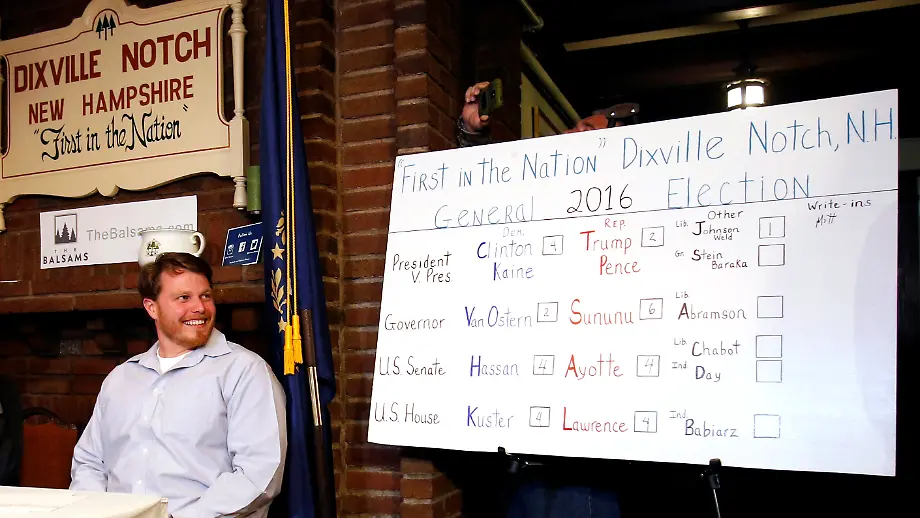 DIXVILLE NOTCH
NEW HAMPSHIRE
"First in the Nation"
THE
BALSAMS
TheBalsams.com
Follow Us:
"First in the Nation" Dixville Notch, N.H.
General 2016 Election
Dem. Rep. Other Write-ins
President Clinton 4 Trump 2 Lib. Johnson 1 Mitt
Weld
V. Pres Kaine Pence Gr. Stein
Baraka
Governor Van Ostern 2 Sununu 6 Lib. Abramson
U.S. Senate Hassan 4 Ayotte 4 Lib. Chabot
Ind Day
U.S. House Kuster 4 Lawrence 4 Ind Babiarz